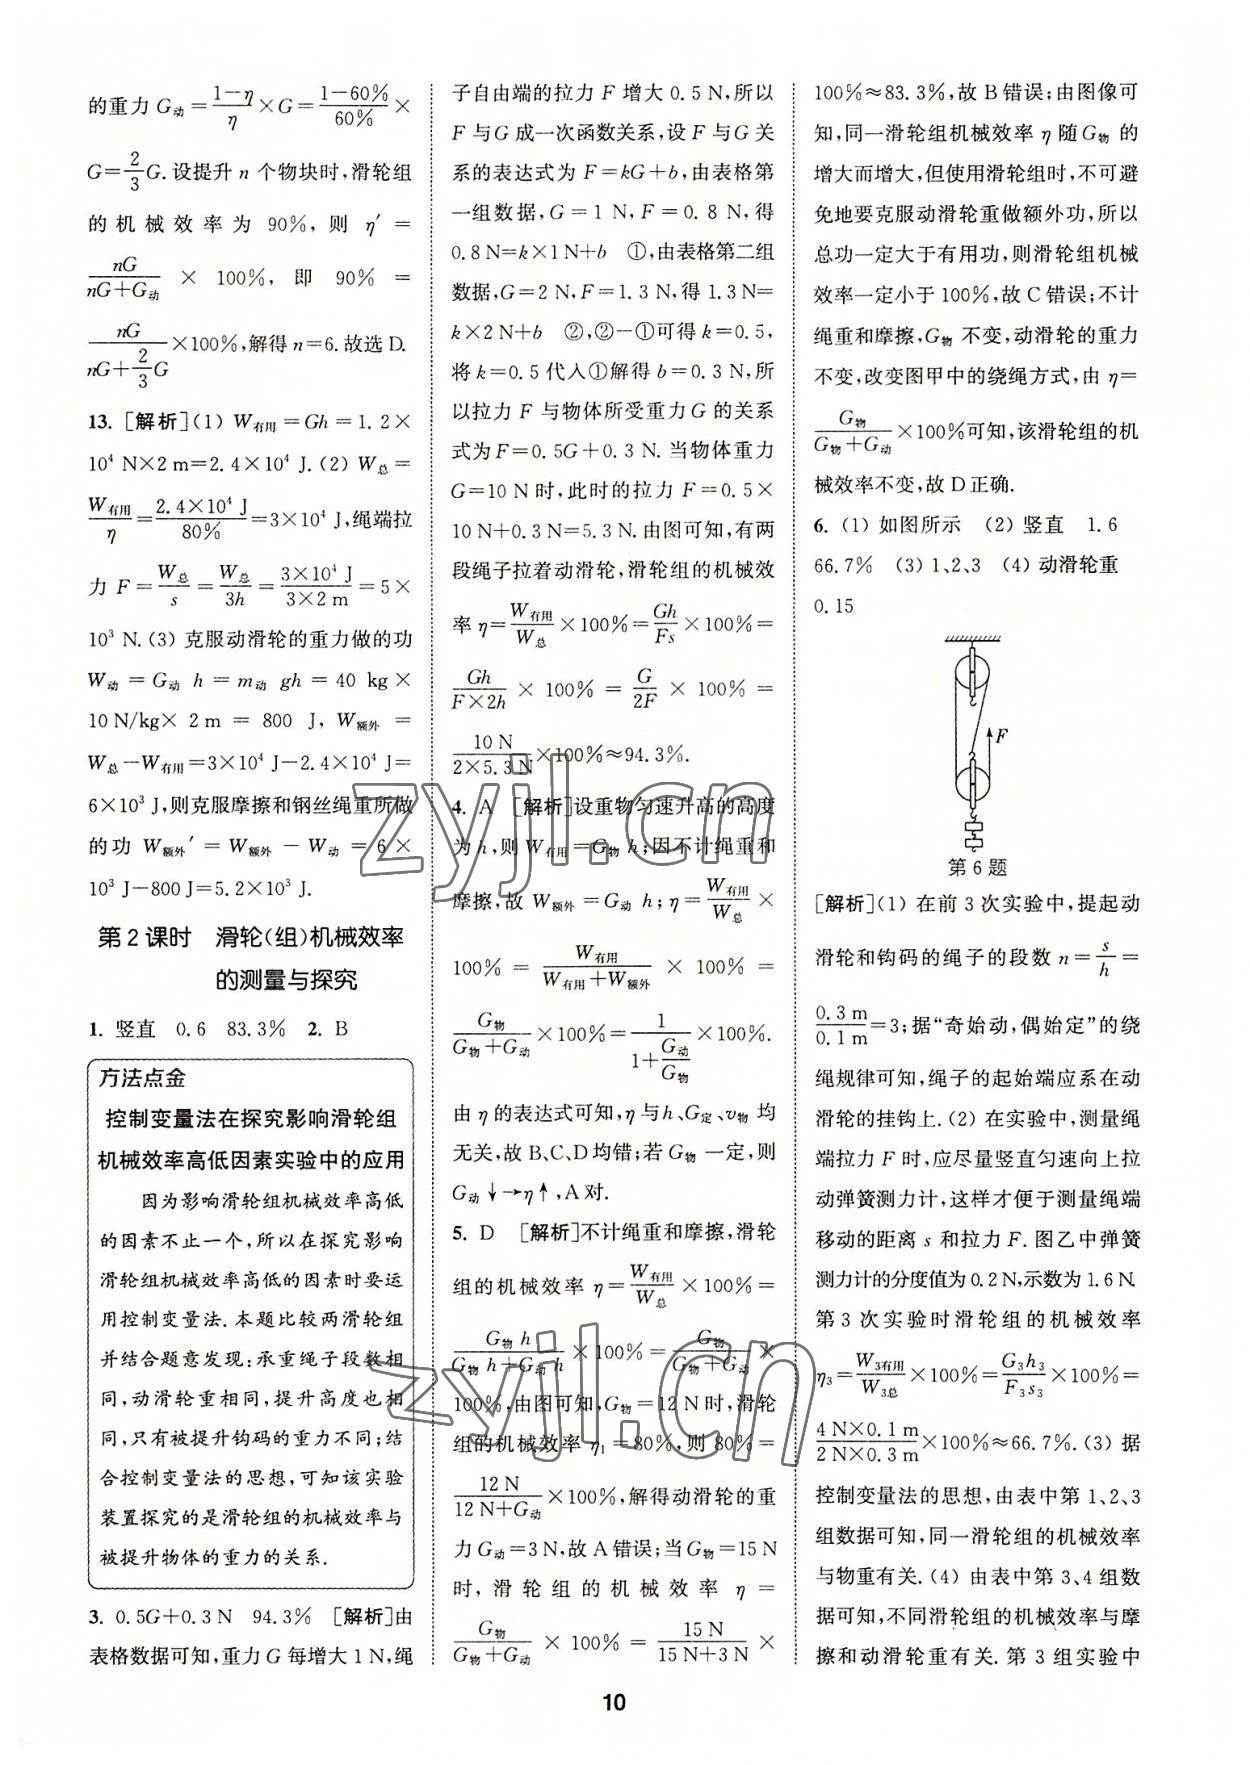 的重力 G动 = (1-η)/η × G = (1-60%)/60% ×
G = 2/3 G. 设提升 n 个物块时,滑轮组
的机械效率为 90%,则 η′ =
nG/(nG+G动) × 100%, 即 90% =
nG/(nG+2/3 G) ×100%,解得 n=6. 故选 D.
13. [解析](1) W有用 = Gh = 1.2×
10⁴ N×2 m=2.4×10⁴ J. (2) W总 =
W有用/η = 2.4×10⁴ J/80% =3×10⁴ J,绳端拉
力 F = W总/s = W总/3h = 3×10⁴ J/(3×2 m) = 5×
10³ N. (3) 克服动滑轮的重力做的功
W动 = G动 h = m动 gh = 40 kg×
10 N/kg× 2 m = 800 J, W额外 =
W总-W有用=3×10⁴ J-2.4×10⁴ J=
6×10³ J,则克服摩擦和钢丝绳重所做
的功 W额外′ = W额外 - W动 = 6×
10³ J-800 J=5.2×10³ J.
第 2 课时 滑轮(组)机械效率
的测量与探究
1. 竖直 0.6 83.3% 2. B
方法点金
控制变量法在探究影响滑轮组
机械效率高低因素实验中的应用
因为影响滑轮组机械效率高低
的因素不止一个,所以在探究影响
滑轮组机械效率高低的因素时要运
用控制变量法. 本题比较两滑轮组
并结合题意发现:承重绳子段数相
同,动滑轮重相同,提升高度也相
同,只有被提升钩码的重力不同;结
合控制变量法的思想,可知该实验
装置探究的是滑轮组的机械效率与
被提升物体的重力的关系.
3. 0.5G+0.3 N 94.3% [解析]由
表格数据可知,重力 G 每增大 1 N,绳
子自由端的拉力 F 增大 0.5 N,所以
F 与 G 成一次函数关系,设 F 与 G 关
系的表达式为 F=kG+b,由表格第
一组数据,G=1 N,F=0.8 N,得
0.8 N=k×1 N+b ①,由表格第二组
数据,G=2 N,F=1.3 N,得 1.3 N=
k×2 N+b ②,②-①可得 k=0.5,
将 k=0.5 代入①解得 b=0.3 N,所
以拉力 F 与物体所受重力 G 的关系
式为 F=0.5G+0.3 N. 当物体重力
G=10 N 时,此时的拉力 F=0.5×
10 N+0.3 N=5.3 N. 由图可知,有两
段绳子拉着动滑轮,滑轮组的机械效
率 η = W有用/W总 ×100% = Gh/Fs ×100% =
Gh/(F×2h) × 100% = G/2F × 100% =
10 N/(2×5.3 N) ×100%≈94.3%.
4. A [解析]设重物匀速升高的高度
为 h,则 W有用=G物 h;因不计绳重和
摩擦,故 W额外 =G动 h; η= W有用/W总 ×
100% = W有用/(W有用+W额外) × 100% =
G物/(G物+G动) ×100% = 1/(1+G动/G物) ×100%.
由 η 的表达式可知,η 与 h、G定、v物 均
无关,故 B、C、D 均错;若 G物 一定,则
G动↓→η↑,A 对.
5. D [解析]不计绳重和摩擦,滑轮
组的机械效率 η = W有用/W总 ×100% =
G物 h/(G物 h+G动 h) ×100% = G物/(G物+G动) ×
100%,由图可知,G物=12 N 时,滑轮
组的机械效率 η₁ =80%,则 80% =
12 N/(12 N+G动) ×100%,解得动滑轮的重
力 G动=3 N,故 A 错误;当 G物=15 N
时, 滑轮组的机械效率 η =
G物/(G物+G动) × 100% = 15 N/(15 N+3 N) ×
100%≈83.3%,故 B 错误;由图像可
知,同一滑轮组机械效率 η 随 G物 的
增大而增大,但使用滑轮组时,不可避
免地要克服动滑轮重做额外功,所以
总功一定大于有用功,则滑轮组机械
效率一定小于 100%,故 C 错误;不计
绳重和摩擦,G物 不变,动滑轮的重力
不变,改变图甲中的绕绳方式,由 η=
G物/(G物+G动) ×100%可知,该滑轮组的机
械效率不变,故 D 正确.
6. (1) 如图所示 (2) 竖直 1.6
66.7% (3) 1、2、3 (4) 动滑轮重
0.15
F
第 6 题
[解析](1) 在前 3 次实验中,提起动
滑轮和钩码的绳子的段数 n = s/h =
0.3 m/0.1 m =3;据“奇始动,偶始定”的绕
绳规律可知,绳子的起始端应系在动
滑轮的挂钩上. (2) 在实验中,测量绳
端拉力 F 时,应尽量竖直匀速向上拉
动弹簧测力计,这样才便于测量绳端
移动的距离 s 和拉力 F. 图乙中弹簧
测力计的分度值为 0.2 N,示数为 1.6 N.
第 3 次实验时滑轮组的机械效率
η₃ = W3有用/W3总 ×100% = G₃h₃/F₃s₃ ×100% =
4 N×0.1 m/(2 N×0.3 m) ×100%≈66.7%. (3) 据
控制变量法的思想,由表中第 1、2、3
组数据可知,同一滑轮组的机械效率
与物重有关. (4) 由表中第 3、4 组数
据可知,不同滑轮组的机械效率与摩
擦和动滑轮重有关. 第 3 组实验中
10
zyjl.cn
zyjl.cn